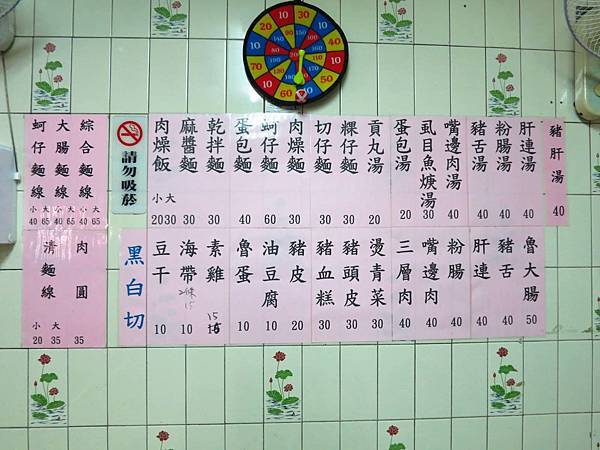 蚵仔麵線 小40 大65
大腸麵線 小40 大65
綜合麵線 小40 大65
請勿吸菸
肉燥飯 小20 大30
麻醬麵 30
乾拌麵 30
蛋包麵 40
蚵仔麵 60
肉燥麵 30
切仔麵 30
粿仔麵 30
貢丸湯 20
蛋包湯 20
虱目魚焿湯 30
嘴邊肉湯 40
豬舌湯 40
粉腸湯 40
肝連湯 40
豬肝湯 40
清麵線 小20 大35
肉圓 35
黑白切
豆干 10
海帶 10
素雞 15
魯蛋 10
油豆腐 10
豬皮 20
豬血糕 30
豬頭皮 30
燙青菜 30
三層肉 40
嘴邊肉 40
粉腸 40
肝連 40
豬舌 40
魯大腸 50
20 100 10 90 50 40 60